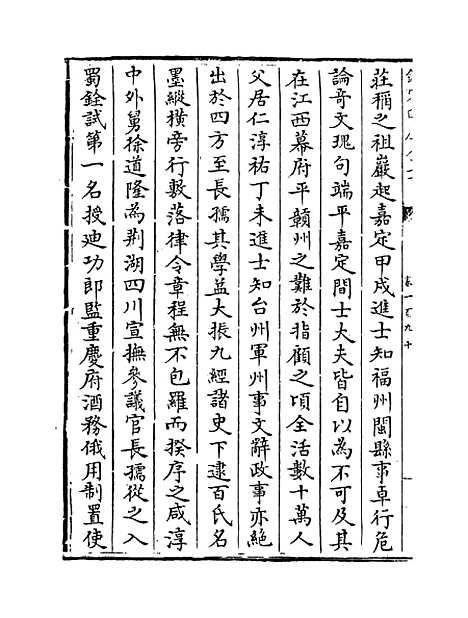 莊稱之祖巖起嘉定甲戌進士知福州閩縣事卓行危
論奇文瑰句端平嘉定間士大夫皆自以為不可及其
在江西幕府平贛州之難於指顧之頃全活數十萬人
父居仁淳祐丁未進士知台州軍州事文辭政事亦絶
出於四方至長孺其學益大振九經諸史下逮百氏名
墨縱橫旁行敷落律令章程無不包羅而揆序之咸淳
中外舅徐道隆為荆湖四川宣撫參議官長孺從之入
蜀銓試第一名授迪功郎監重慶府酒務俄用制置使